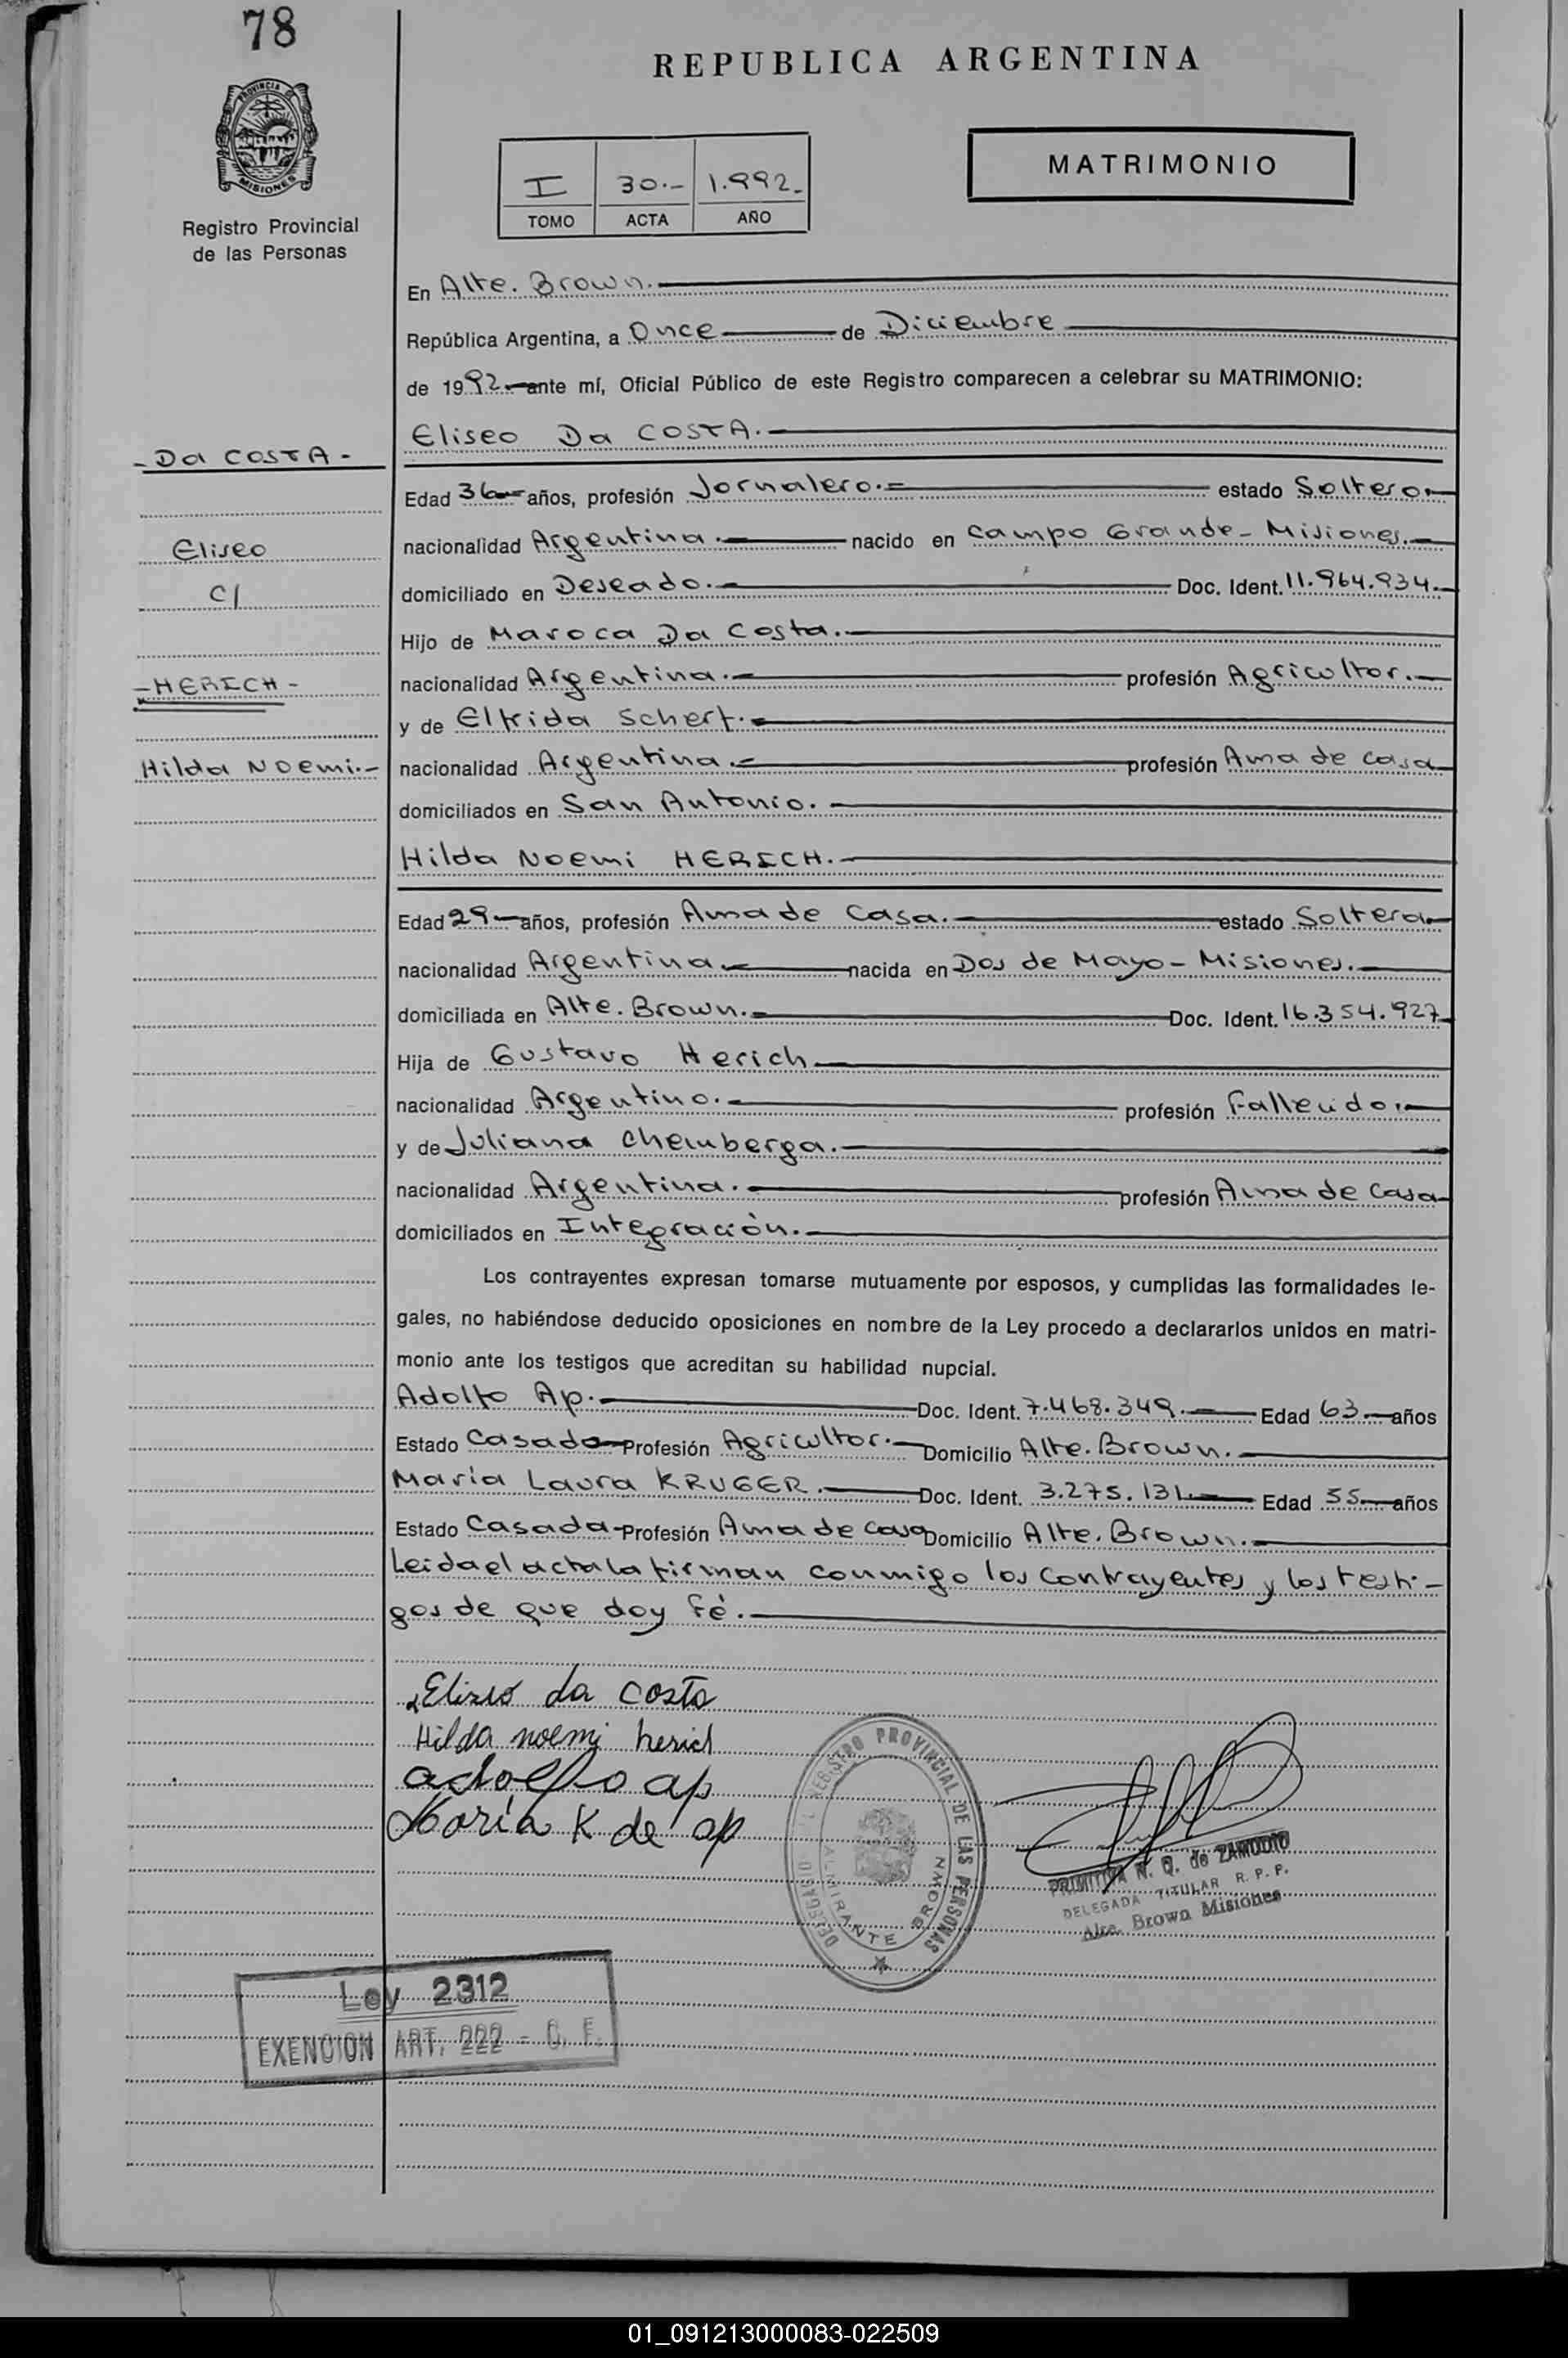 78
REPUBLICA ARGENTINA
PROVINCIA
MISIONES
Registro Provincial
de las Personas
I 30.- 1.992.-
TOMO ACTA AÑO
MATRIMONIO
En Alte. Brown.
República Argentina, a Once de Diciembre
de 1992.- ante mí, Oficial Público de este Registro comparecen a celebrar su MATRIMONIO:
Eliseo Da COSTA.
- Da COSTA -
Eliseo
C/
- HERICH -
Hilda Noemi.-
Edad 36 años, profesión Jornalero.= estado Soltero.
nacionalidad Argentina. nacido en Campo Grande - Misiones.
domiciliado en Deseado. Doc. Ident. 11.964.934.
Hijo de Maroca Da Costa.
nacionalidad Argentina. profesión Agricultor.
y de Elfrida Scherf.
nacionalidad Argentina. profesión Ama de casa
domiciliados en San Antonio.
Hilda Noemi HERICH.
Edad 29 años, profesión Ama de Casa. estado Soltera
nacionalidad Argentina nacida en Dos de Mayo - Misiones.
domiciliada en Alte. Brown. Doc. Ident. 16.354.927
Hija de Gustavo Herich
nacionalidad Argentino. profesión Fallecido.
y de Juliana Chemberga.
nacionalidad Argentina. profesión Ama de Casa
domiciliados en Integración.
Los contrayentes expresan tomarse mutuamente por esposos, y cumplidas las formalidades le-
gales, no habiéndose deducido oposiciones en nombre de la Ley procedo a declararlos unidos en matri-
monio ante los testigos que acreditan su habilidad nupcial.
Adolfo Ap. Doc. Ident. 7.468.349. Edad 63 años
Estado Casado Profesión Agricultor. Domicilio Alte. Brown.
María Laura KRUGER. Doc. Ident. 3.275.131 Edad 55 años
Estado Casada Profesión Ama de casa Domicilio Alte. Brown.
Leida el acta la firman conmigo los contrayentes y los testi-
gos de que doy fé.
Eliseo da Costa
Hilda noemi herich
adolfo ap
Maria K de ap
REGISTRO PROVINCIAL DE LAS PERSONAS
DELEGACIO
ALMIRANTE BROWN
PRIMITIVA N. Q. de ZAMUDIO
DELEGADA TITULAR R. P. P.
Alte. Brown Misiones
Ley 2312
EXENCION ART. 222 - C. F.
01_091213000083-022509